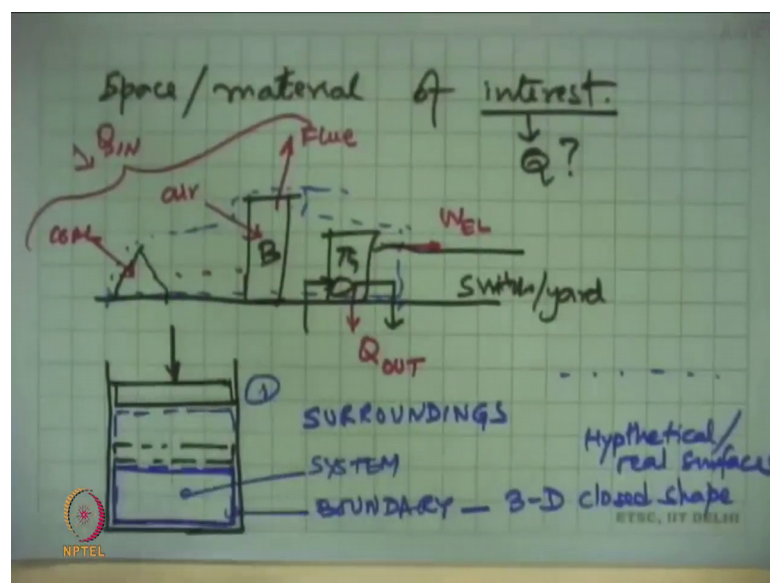 Space/material of interest.
Q?
QIN
Flue
air
COAL
B
WEL
Switch/yard
QOUT
1
SURROUNDINGS
SYSTEM
BOUNDARY - 3-D closed shape
Hypthetical/
real surfaces
ETSC, IIT DELHI
NPTEL